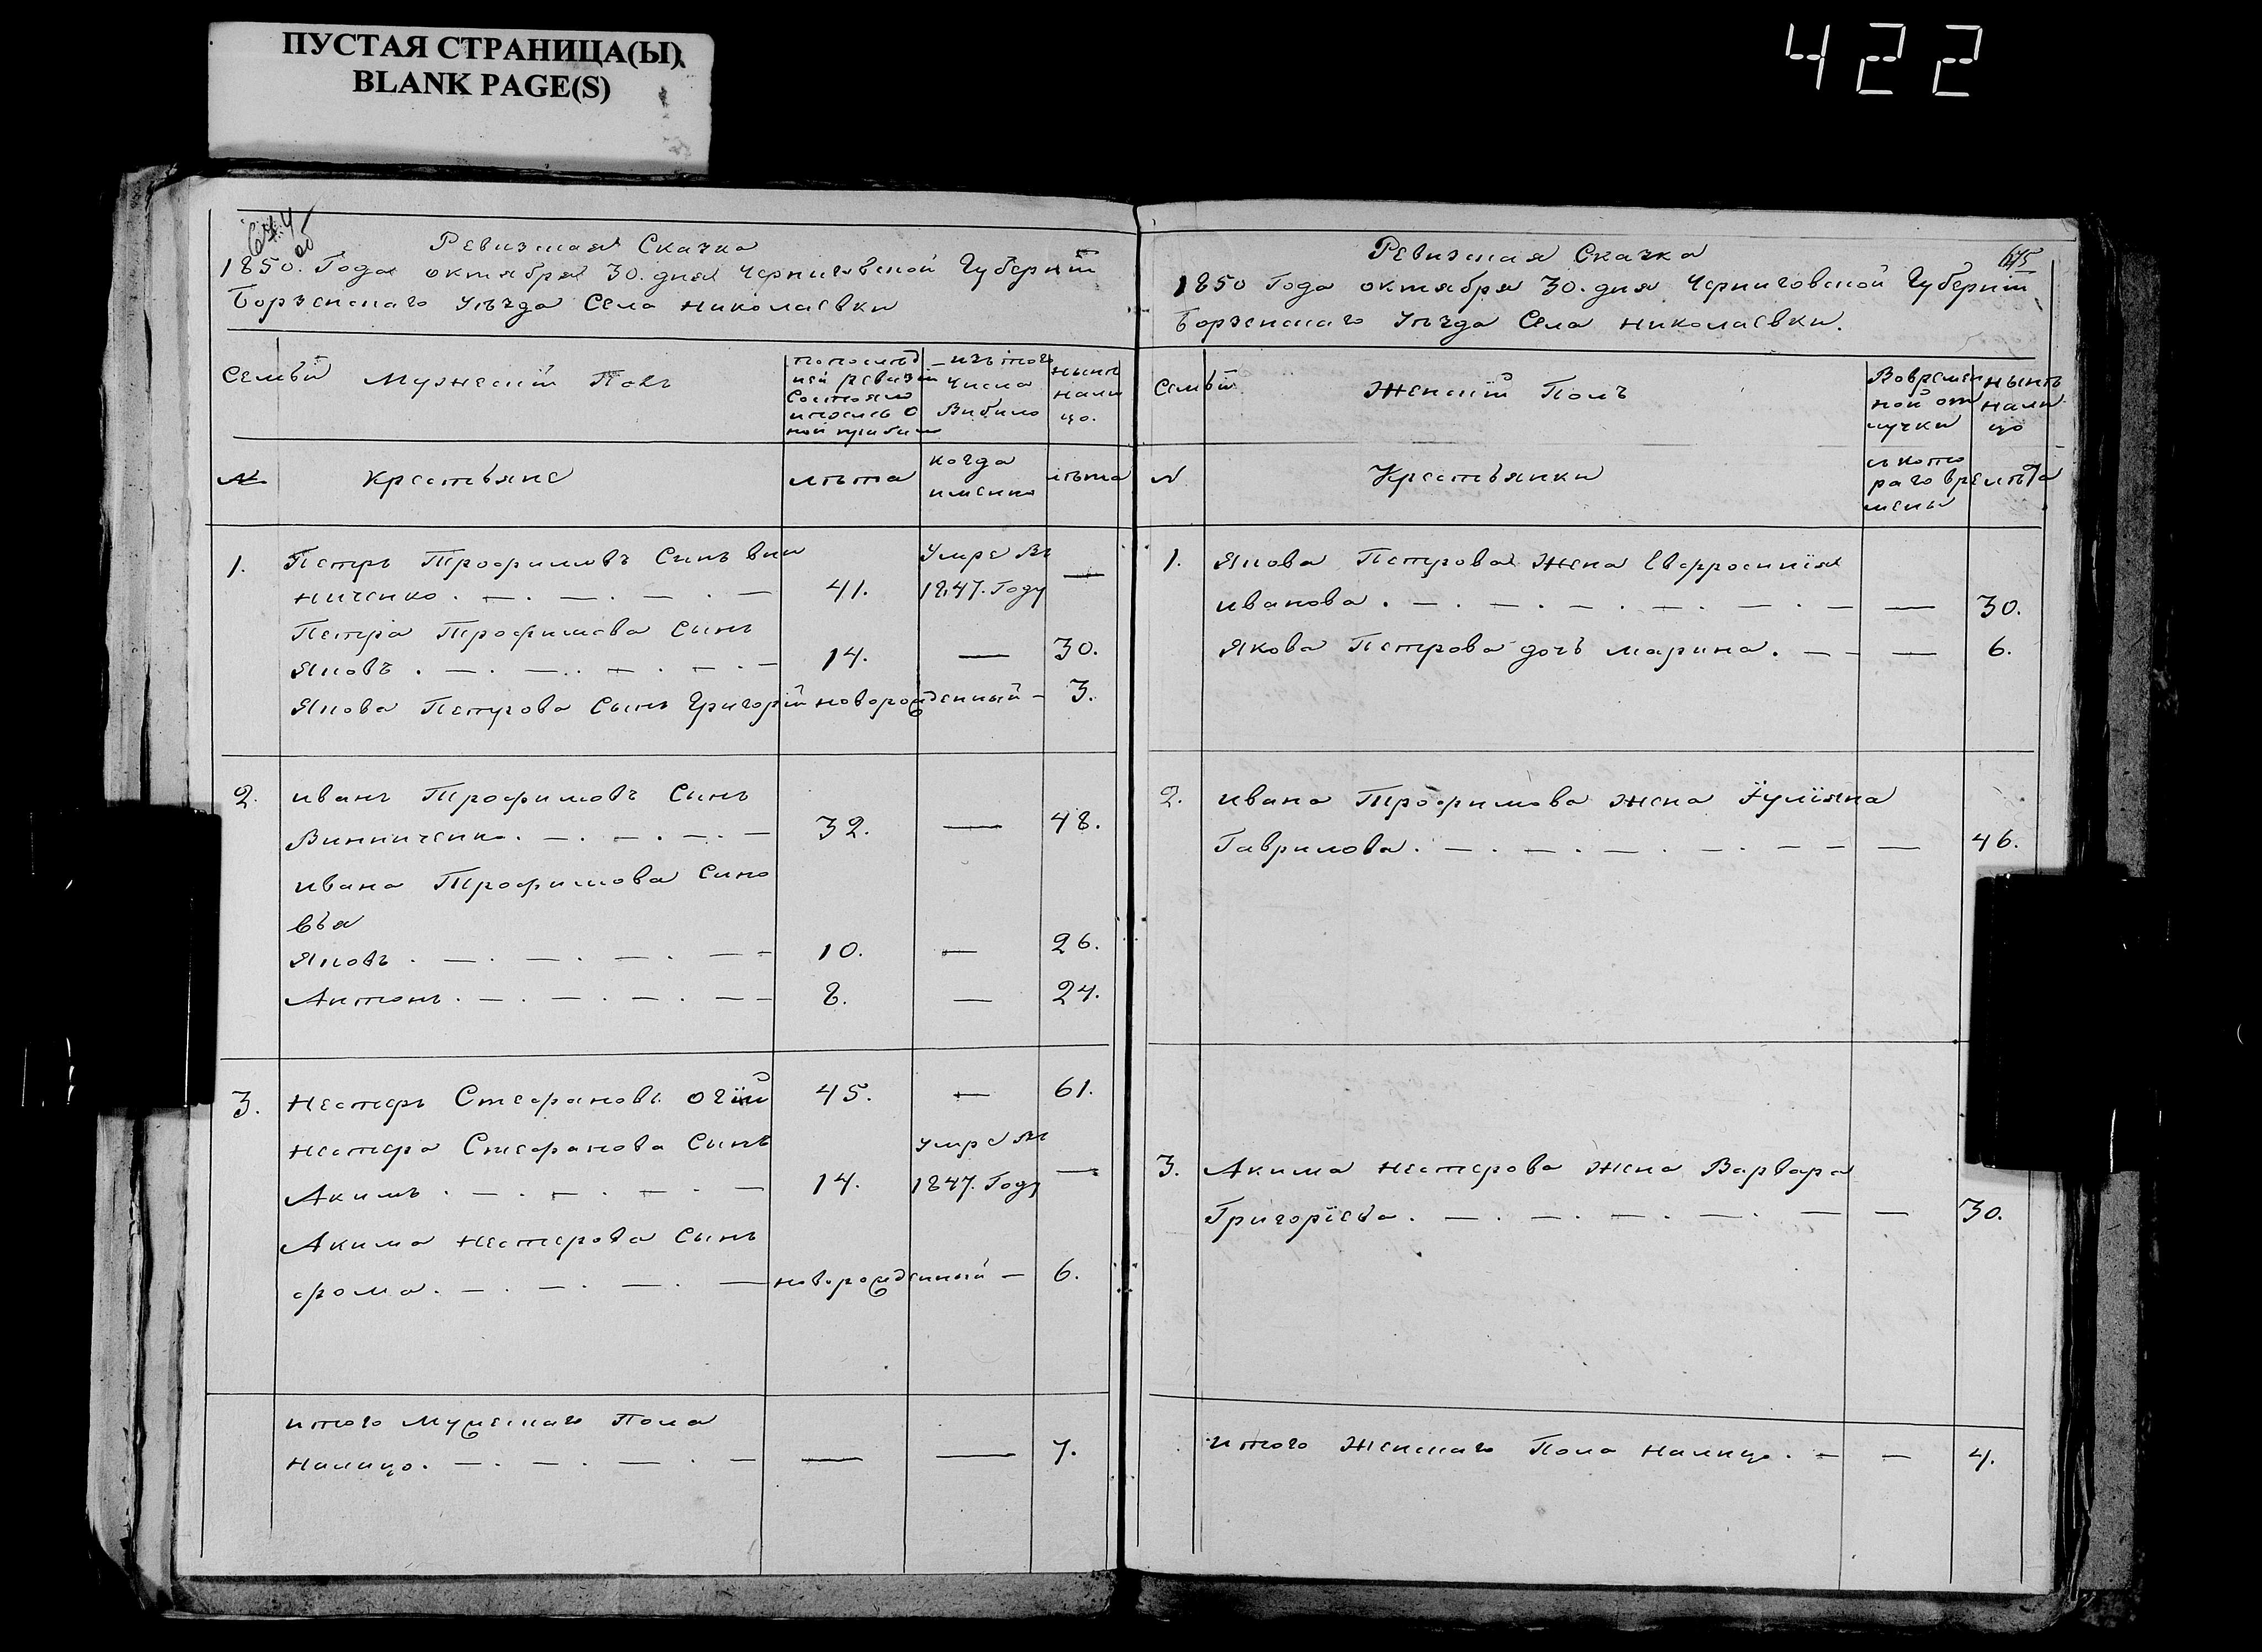 ПУСТАЯ СТРАНИЦА(Ы)
BLANK PAGE(S)
422
Ревизская Сказка
1850. Года октября 30. дня Черниговской Губернїи
Борзенскаго уѣзда Села Николаевки
Семьи
Мужескїй Полъ
по послѣд
ней ревизїи
состояло
и после о
ной прибыло
изъ того
числа
Выбыло
нынѣ
нали
цо.
№
Крестьяне
лѣта
когда
именно
лѣта
1. Петръ Трофимовъ Синъ Вин
ниченко. 41. Умре въ 1847. Году —
Петра Трофимова Сынъ
Яковъ. 14. — 30.
Якова Петрова Сынъ Григорїй новорожденный — 3.
2. Иванъ Трофимовъ Сынъ
Винниченко. 32. — 48.
Ивана Трофимова Сино
вья
Яковъ. 10. — 26.
Антонъ. 8. — 24.
3. Нестеръ Стефановъ 45. — 61.
Нестера Стефанова Сынъ
Акимъ. 14. Умре въ 1847. Году —
Акима Нестерова Сынъ
Фома. новорожденный — 6.
Итого Мужескаго Пола
Налицо. — — 7.
645
Ревизская Сказка
1850 Года октября 30. дня Черниговской Губернїи
Борзенскаго уѣзда Села Николаевки.
Семьи
Женскїй Полъ
Во времен
ной от
лучки
нынѣ
нали
цо
№
Крестьянки
съ кото
раго вре
мены
лѣта
1. Якова Петрова Жена Евфросинїя
Иванова. — 30.
Якова Петрова дочь Марина. — 6.
2. Ивана Трофимова Жена Іулїяна
Гаврилова. — 46.
3. Акима Нестерова Жена Варвара
Григорїева. — 30.
Итого Женскаго Пола Налицо. — — 4.